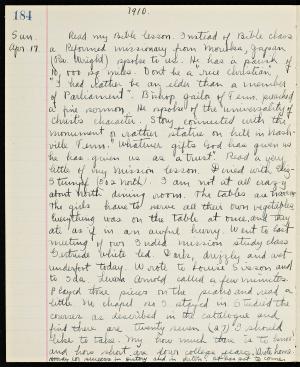 184
1910.
Sun. Read my Bible lesson. Instead of Bible class
Apr. 17. a Reformed missionary from Morioka, Japan
(Rev. Wright) spoke to us. He has a parish of
10,000 sq. miles. "Dont be a 'rice Christian',"
"I had rather be an elder than a member
of Parliament". Bishop Gailor of Tenn. preached
a fine sermon. He spoke of the universality of
Christ's character. Story connected with the
monument or rather statue on hill in Nash-
ville Tenn. "Whatever gifts God has given us
he has given us as a trust". Read a very
little of my Mission lesson. Dined with
Stumpf I am not at all crazy
about North dining room. The tables are
The girls have to serve all their own vegetables
Everything was on the table at once, and they
ate as if in an awful hurry. Went to last
meeting of our Inded mission study class
Gertrude White led. Dark, drizzly and wet
underfoot today. Wrote to Louise Sisson and
to Ida. Leida Arnold called a few minutes.
Played three pieces on the piano and read a
little. No chapel so I stayed in & studied the
courses as described in the catalogue and
find there are twenty seven (27) I should
like to take. My how much there is to know
and how short are four college years. Wrote home.